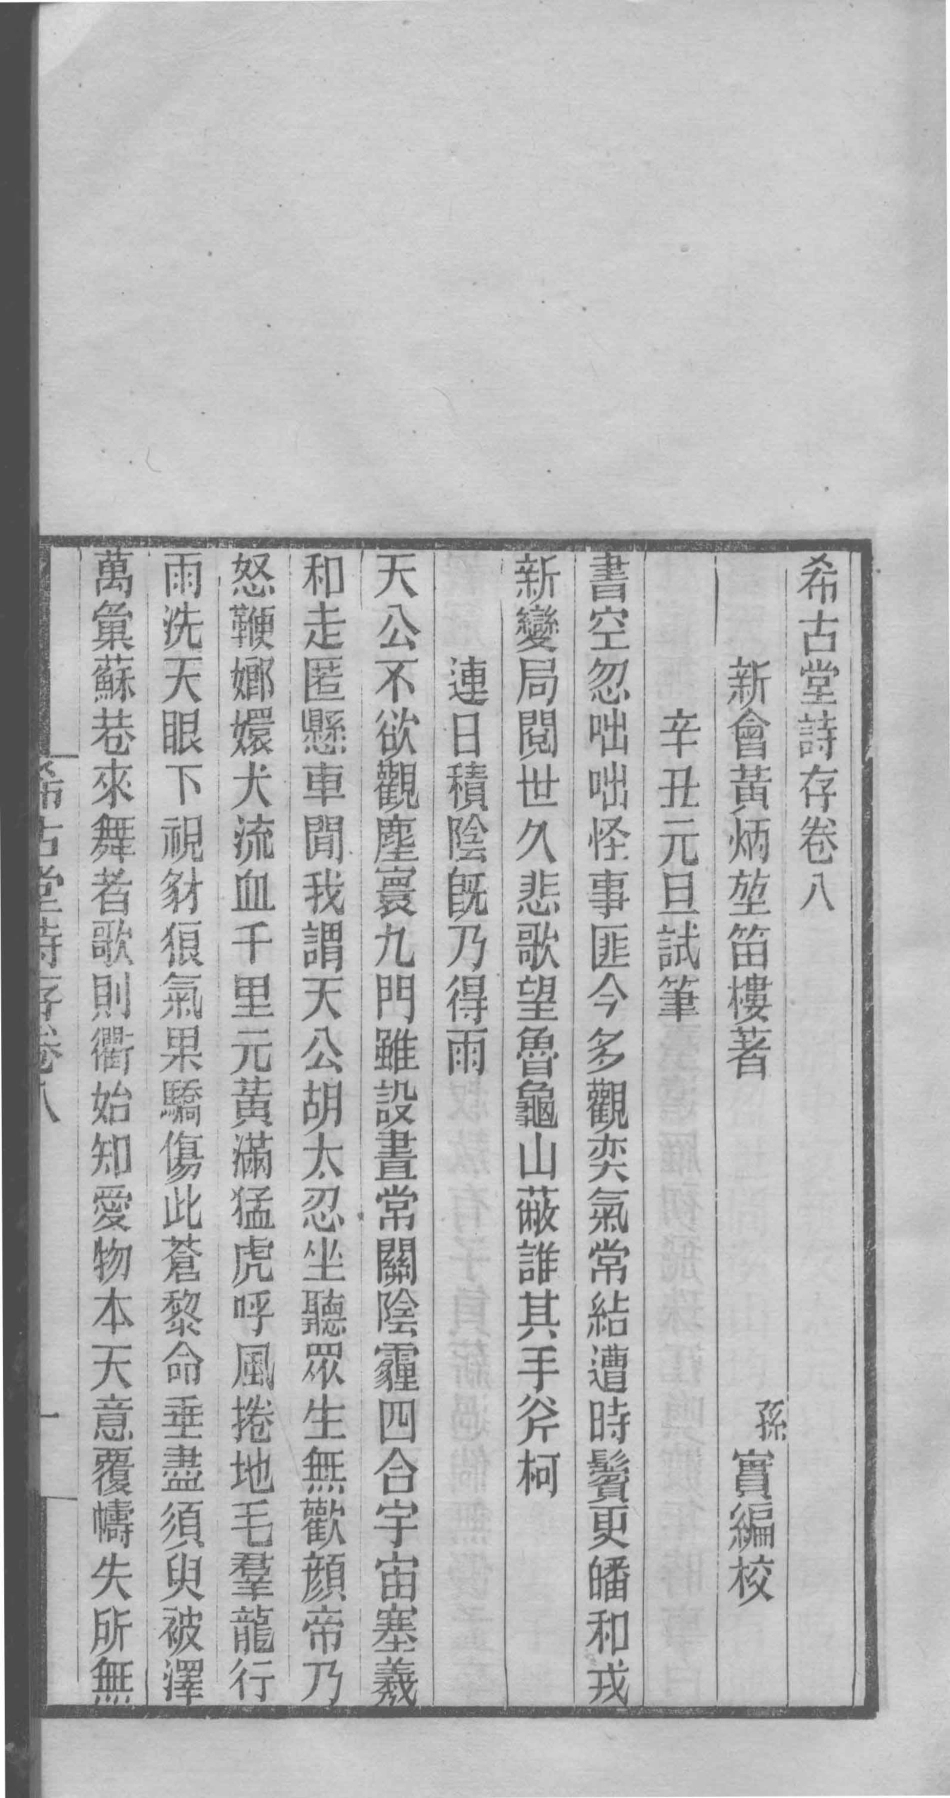 希古堂詩存卷八
新會黃炳堃笛樓著　孫實編校
辛丑元旦試筆
書空忽咄咄怪事匪今多觀奕氣常結遭時鬢更皤和戎
新變局閱世久悲歌望魯龜山蔽誰其手斧柯
連日積陰旣乃得雨
天公不欲觀塵寰九門雖設晝常關陰霾四合宇宙塞羲
和走匿懸車聞我謂天公胡太忍坐聽眾生無歡顏帝乃
怒鞭嫏嬛犬流血千里元黃滿猛虎呼風捲地毛羣龍行
雨洗天眼下視豺狼氣果驕傷此蒼黎命垂盡須臾被澤
萬彙蘇巷來舞者歌則衢始知愛物本天意覆幬失所無
希古堂詩存卷八
一